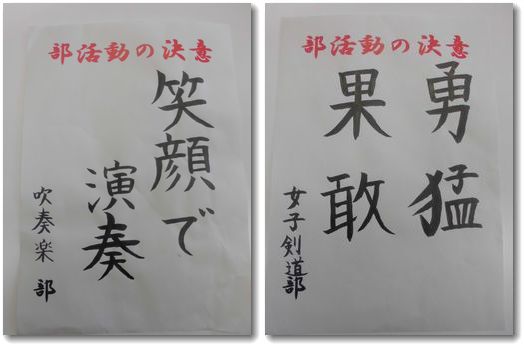 部活動の決意
笑顔で
演奏
吹奏楽部
部活動の決意
勇猛
果敢
女子剣道部